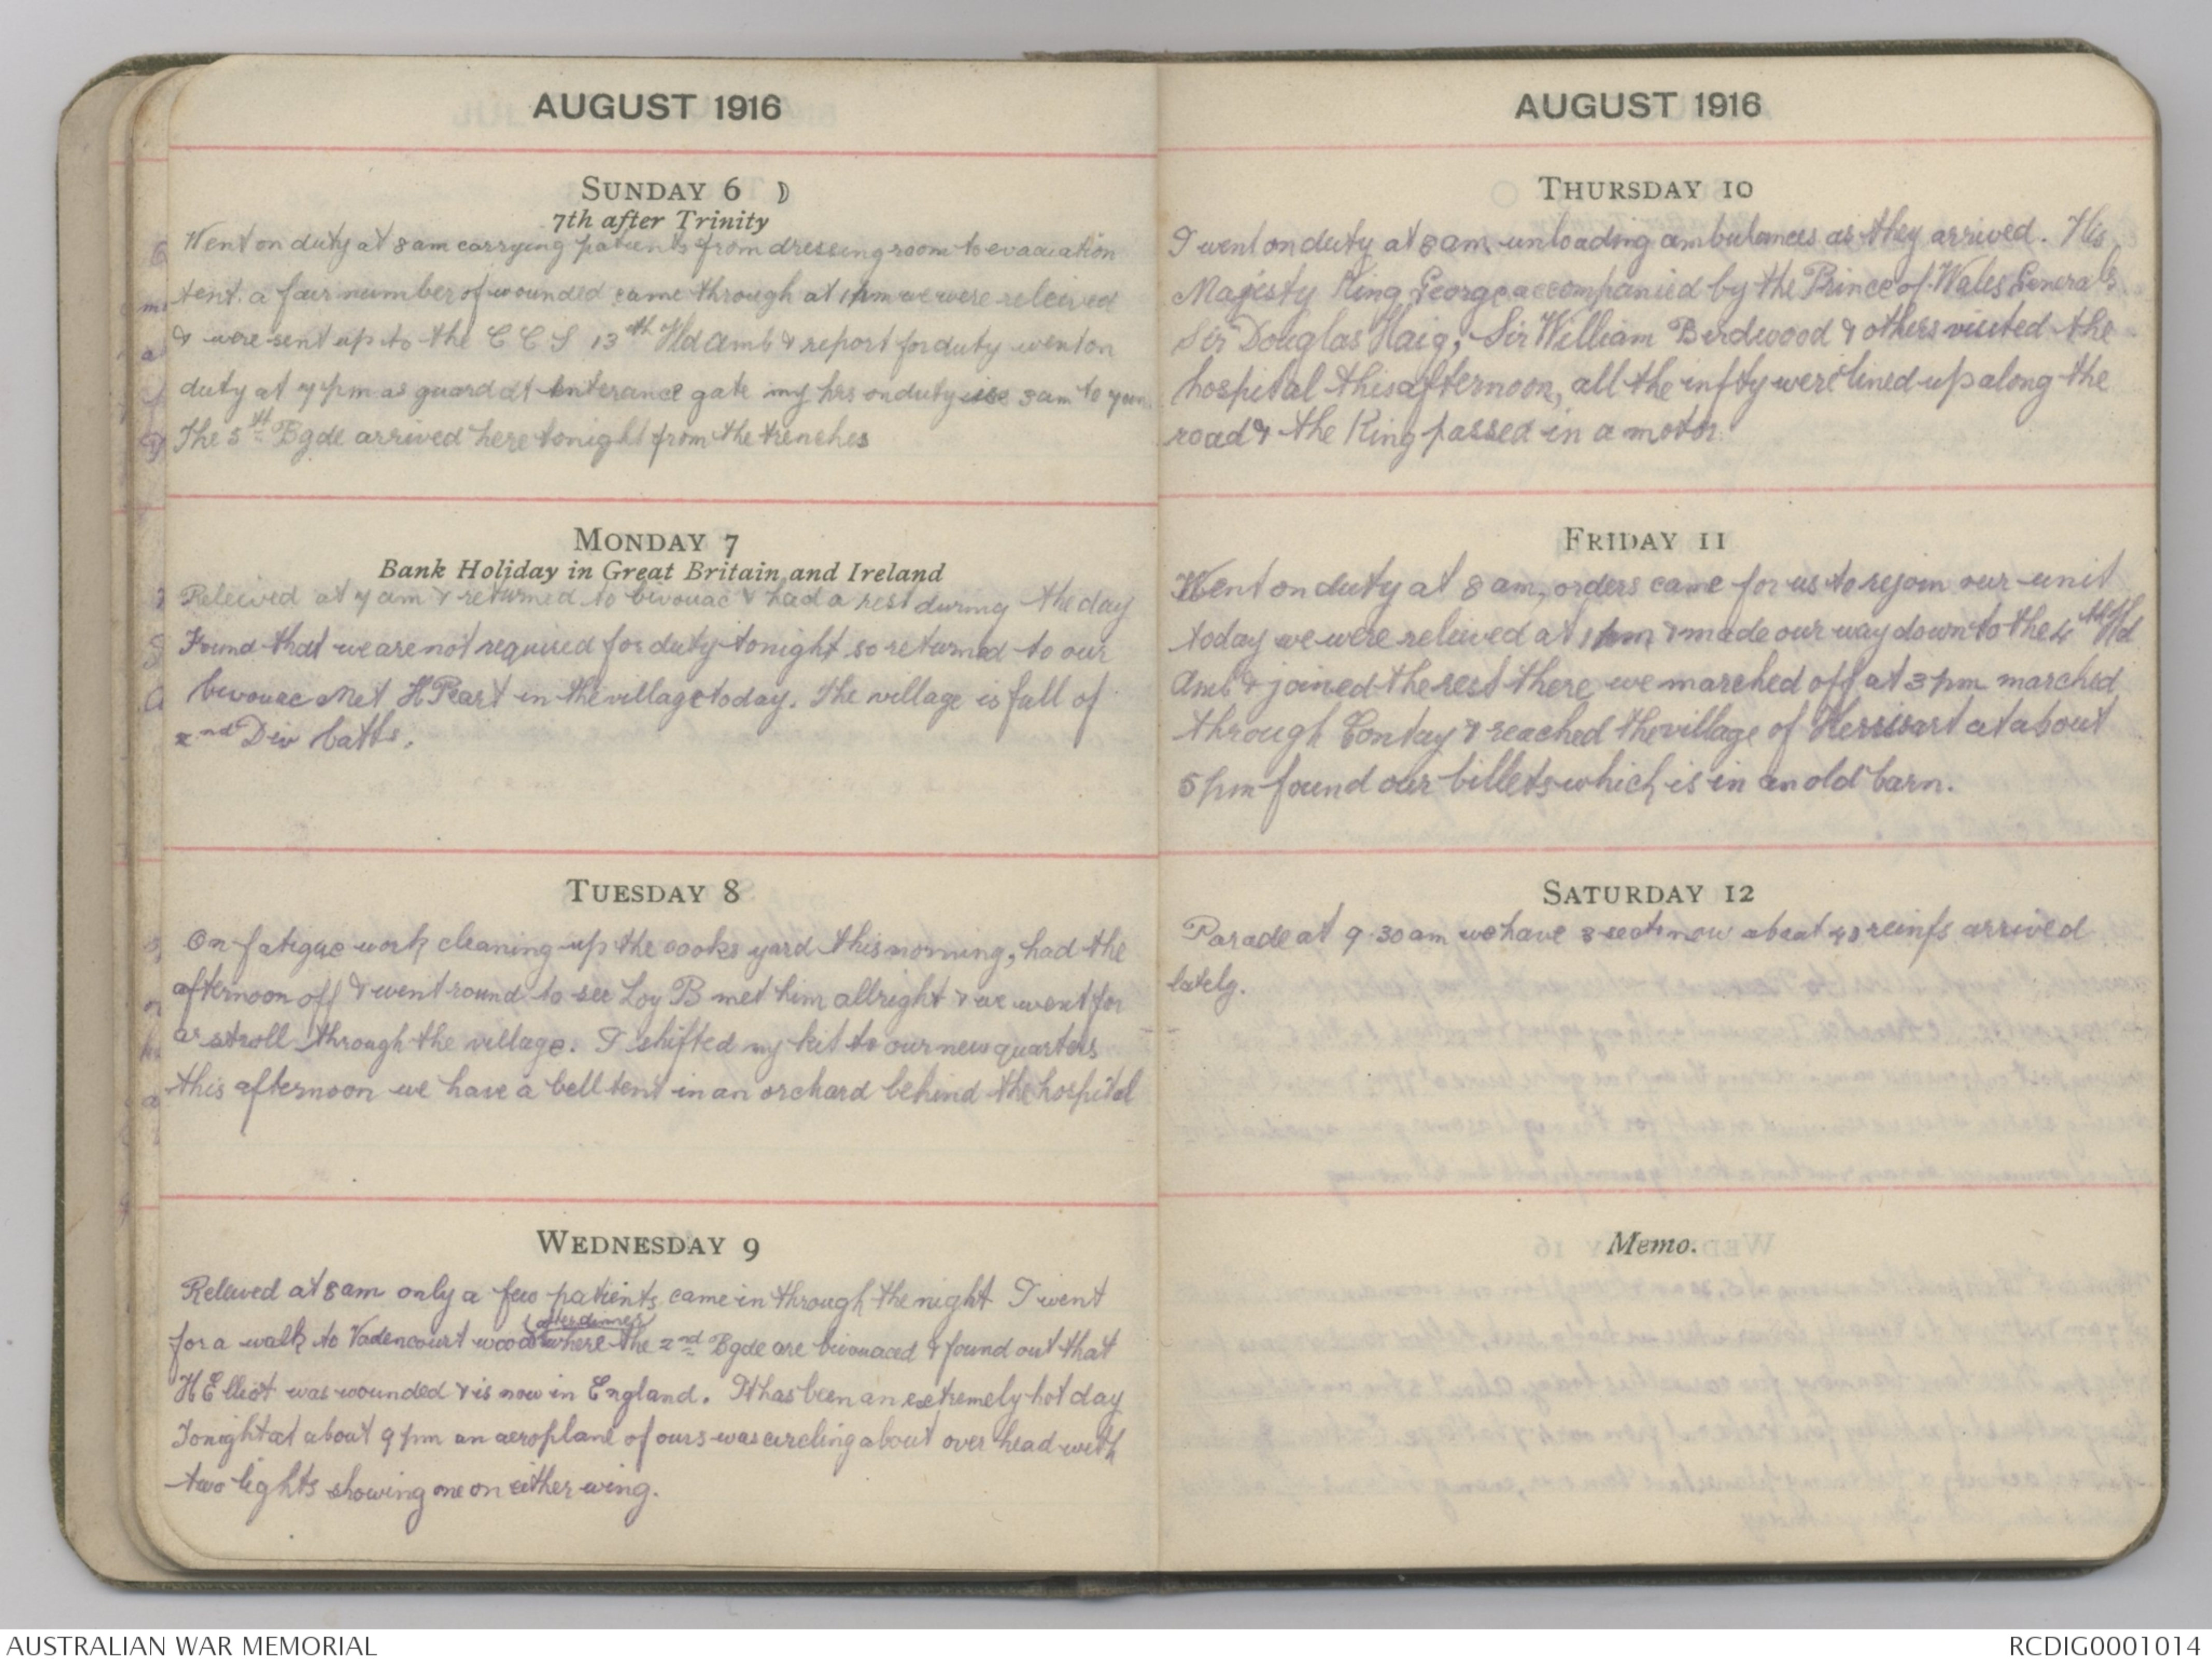 AUGUST 1916
SUNDAY 6
7th after Trinity
Went on duty at 8 am carrying patients from dressing room to evacuation
tent. a fair number of wounded came through at 1 pm we were releived
& were sent up to the C C S 13th Fld Amb & report for duty went on
duty at 7 pm as guard at enterance gate my hrs on duty 3 am to 7 am
The 5th Bgde arrived here tonight from the trenches
MONDAY 7
Bank Holiday in Great Britain and Ireland
Releived at 7 am & returned to bivouac & had a rest during the day
Found that we are not required for duty tonight so returned to our
bivouac Met H Peart in the village today. The village is full of
2nd Div batts.
TUESDAY 8
On fatigue work cleaning up the cooks yard this morning, had the
afternoon off & went round to see Loy B met him allright & we went for
a stroll through the village. I shifted my kit to our new quarters
this afternoon we have a bell tent in an orchard behind the hospital
WEDNESDAY 9
Releived at 8 am only a few patients came in through the night I went
(after dinner)
for a walk to Vadencourt wood where the 2nd Bgde are bivouaced & found out that
H Elliot was wounded & is now in England. It has been an extremely hot day
Tonight at about 9 pm an aeroplane of ours was circling about over head with
two lights showing one on either wing.
AUGUST 1916
THURSDAY 10
I went on duty at 8 am unloading ambulances as they arrived. His
Majesty King George accompanied by the Prince of Wales Generals
Sir Douglas Haig, Sir William Birdwood & others visited the
hospital this afternoon, all the infty were lined up along the
road & the King passed in a motor.
FRIDAY 11
Went on duty at 8 am, orders came for us to rejoin our unit
today we were releived at 1 pm & made our way down to the 4th Fld
Amb & joined the rest there we marched off at 3 pm marched
through Contay & reached the village of Herissart at about
5 pm found our billets which is in an old barn.
SATURDAY 12
Parade at 9.30 am we have 3 sects now about reinfs arrived
lately.
Memo.
AUSTRALIAN WAR MEMORIAL
RCDIG0001014